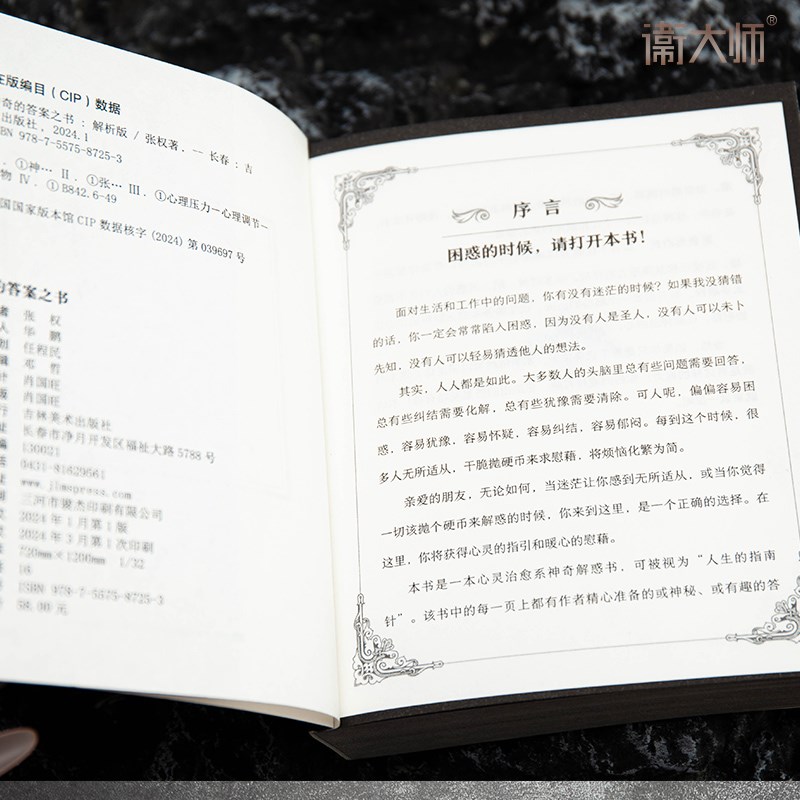 衛大师®
在版编目（CIP）数据
奇的答案之书：解析版 / 张权著. — 长春：吉
出版社，2024.1
BN 978-7-5575-8725-3
. ①神… Ⅱ. ①张… Ⅲ. ①心理压力—心理调节—
物 Ⅳ. ①B842.6-49
国国家版本馆 CIP 数据核字（2024）第 039697 号
的答案之书
者 张 权
人 华 鹏
划 任程民
辑 邓 哲
计 肖国旺
版 肖国旺
行 吉林美术出版社
址 长春市净月开发区福祉大路5788号
编 130021
0431-81629561
www.jlmspress.com
三河市骏杰印刷有限公司
2024年1月第1版
2024年3月第1次印刷
720mm×1200mm 1/32
16
ISBN 978-7-5575-8725-3
58.00元
序言
困惑的时候，请打开本书！
面对生活和工作中的问题，你有没有迷茫的时候？如果我没猜错
的话，你一定会常常陷入困惑，因为没有人是圣人，没有人可以未卜
先知，没有人可以轻易猜透他人的想法。
其实，人人都是如此。大多数人的头脑里总有些问题需要回答，
总有些纠结需要化解，总有些犹豫需要清除。可人呢，偏偏容易困
惑，容易犹豫，容易怀疑，容易纠结，容易郁闷。每到这个时候，很
多人无所适从，干脆抛硬币来求慰藉，将烦恼化繁为简。
亲爱的朋友，无论如何，当迷茫让你感到无所适从，或当你觉得
一切该抛个硬币来解惑的时候，你来到这里，是一个正确的选择。在
这里，你将获得心灵的指引和暖心的慰藉。
本书是一本心灵治愈系神奇解惑书，可被视为“人生的指南
针”。该书中的每一页上都有作者精心准备的或神秘、或有趣的答